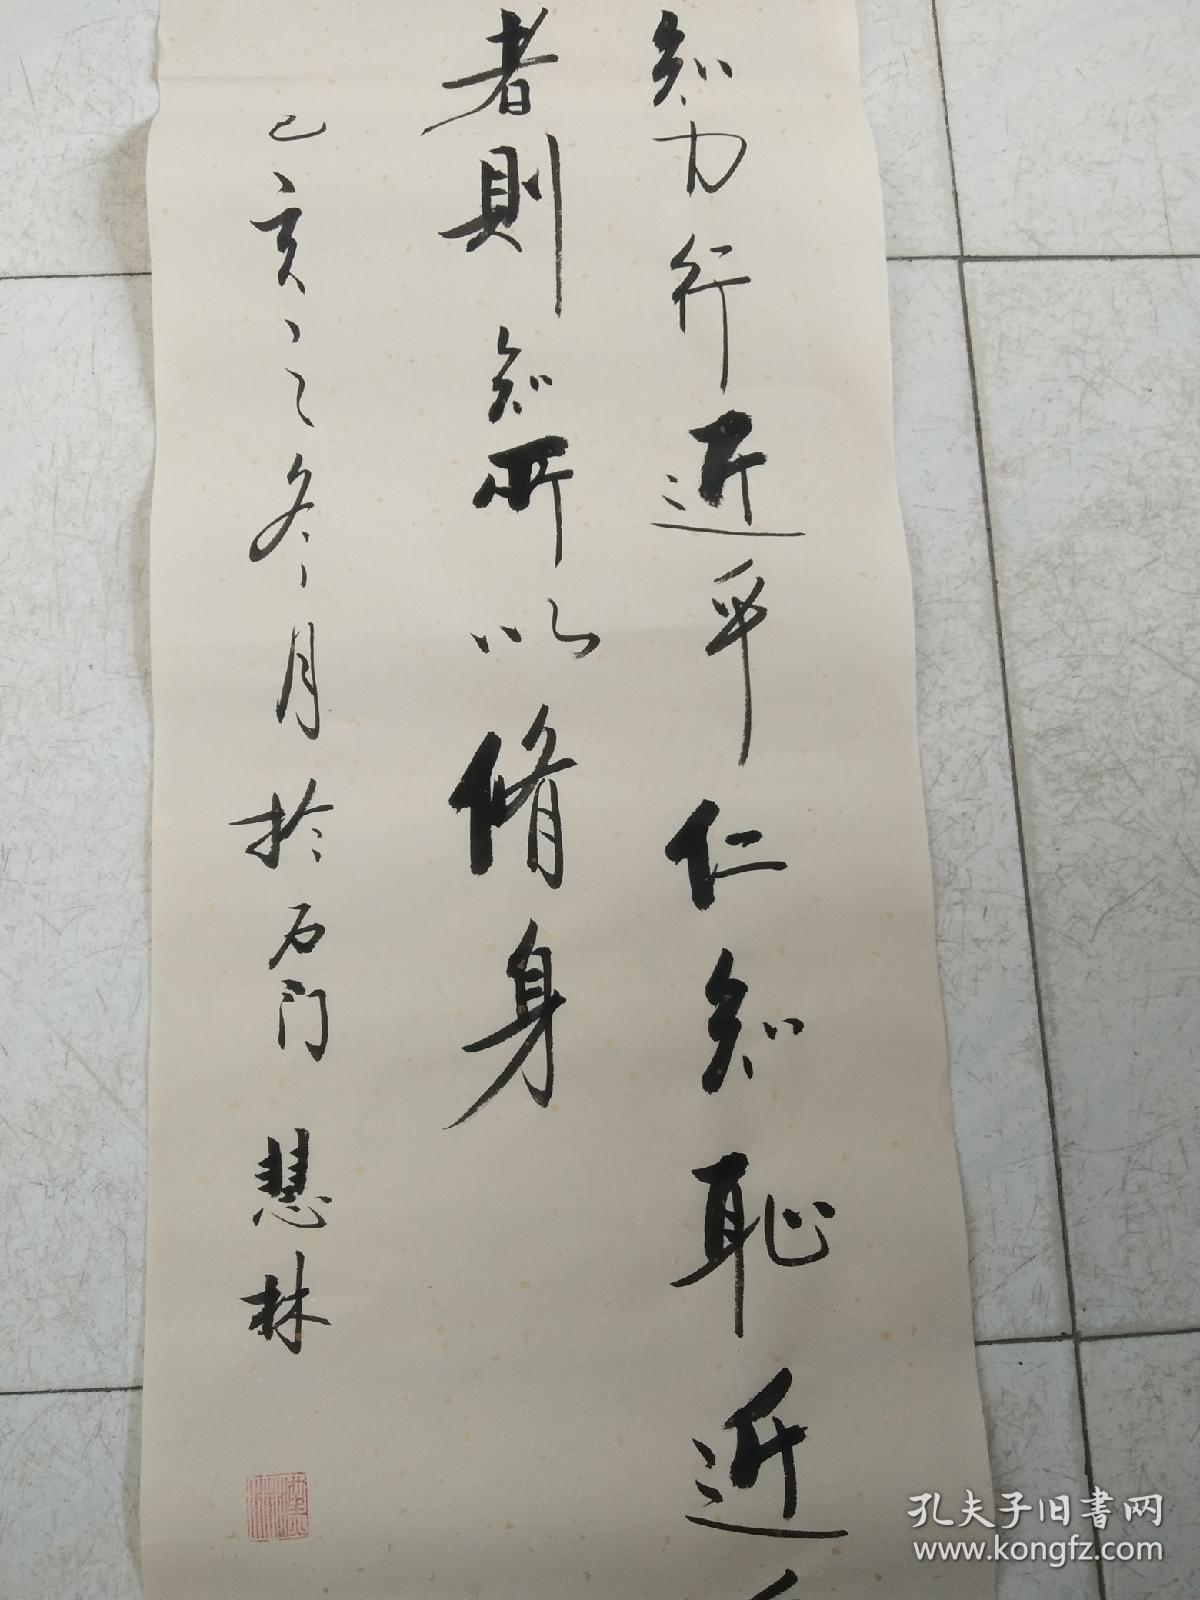 知力行近乎仁知恥近
者則知所以脩身
己亥之冬月於石门 慧林
孔夫子旧書网
www.kongfz.com